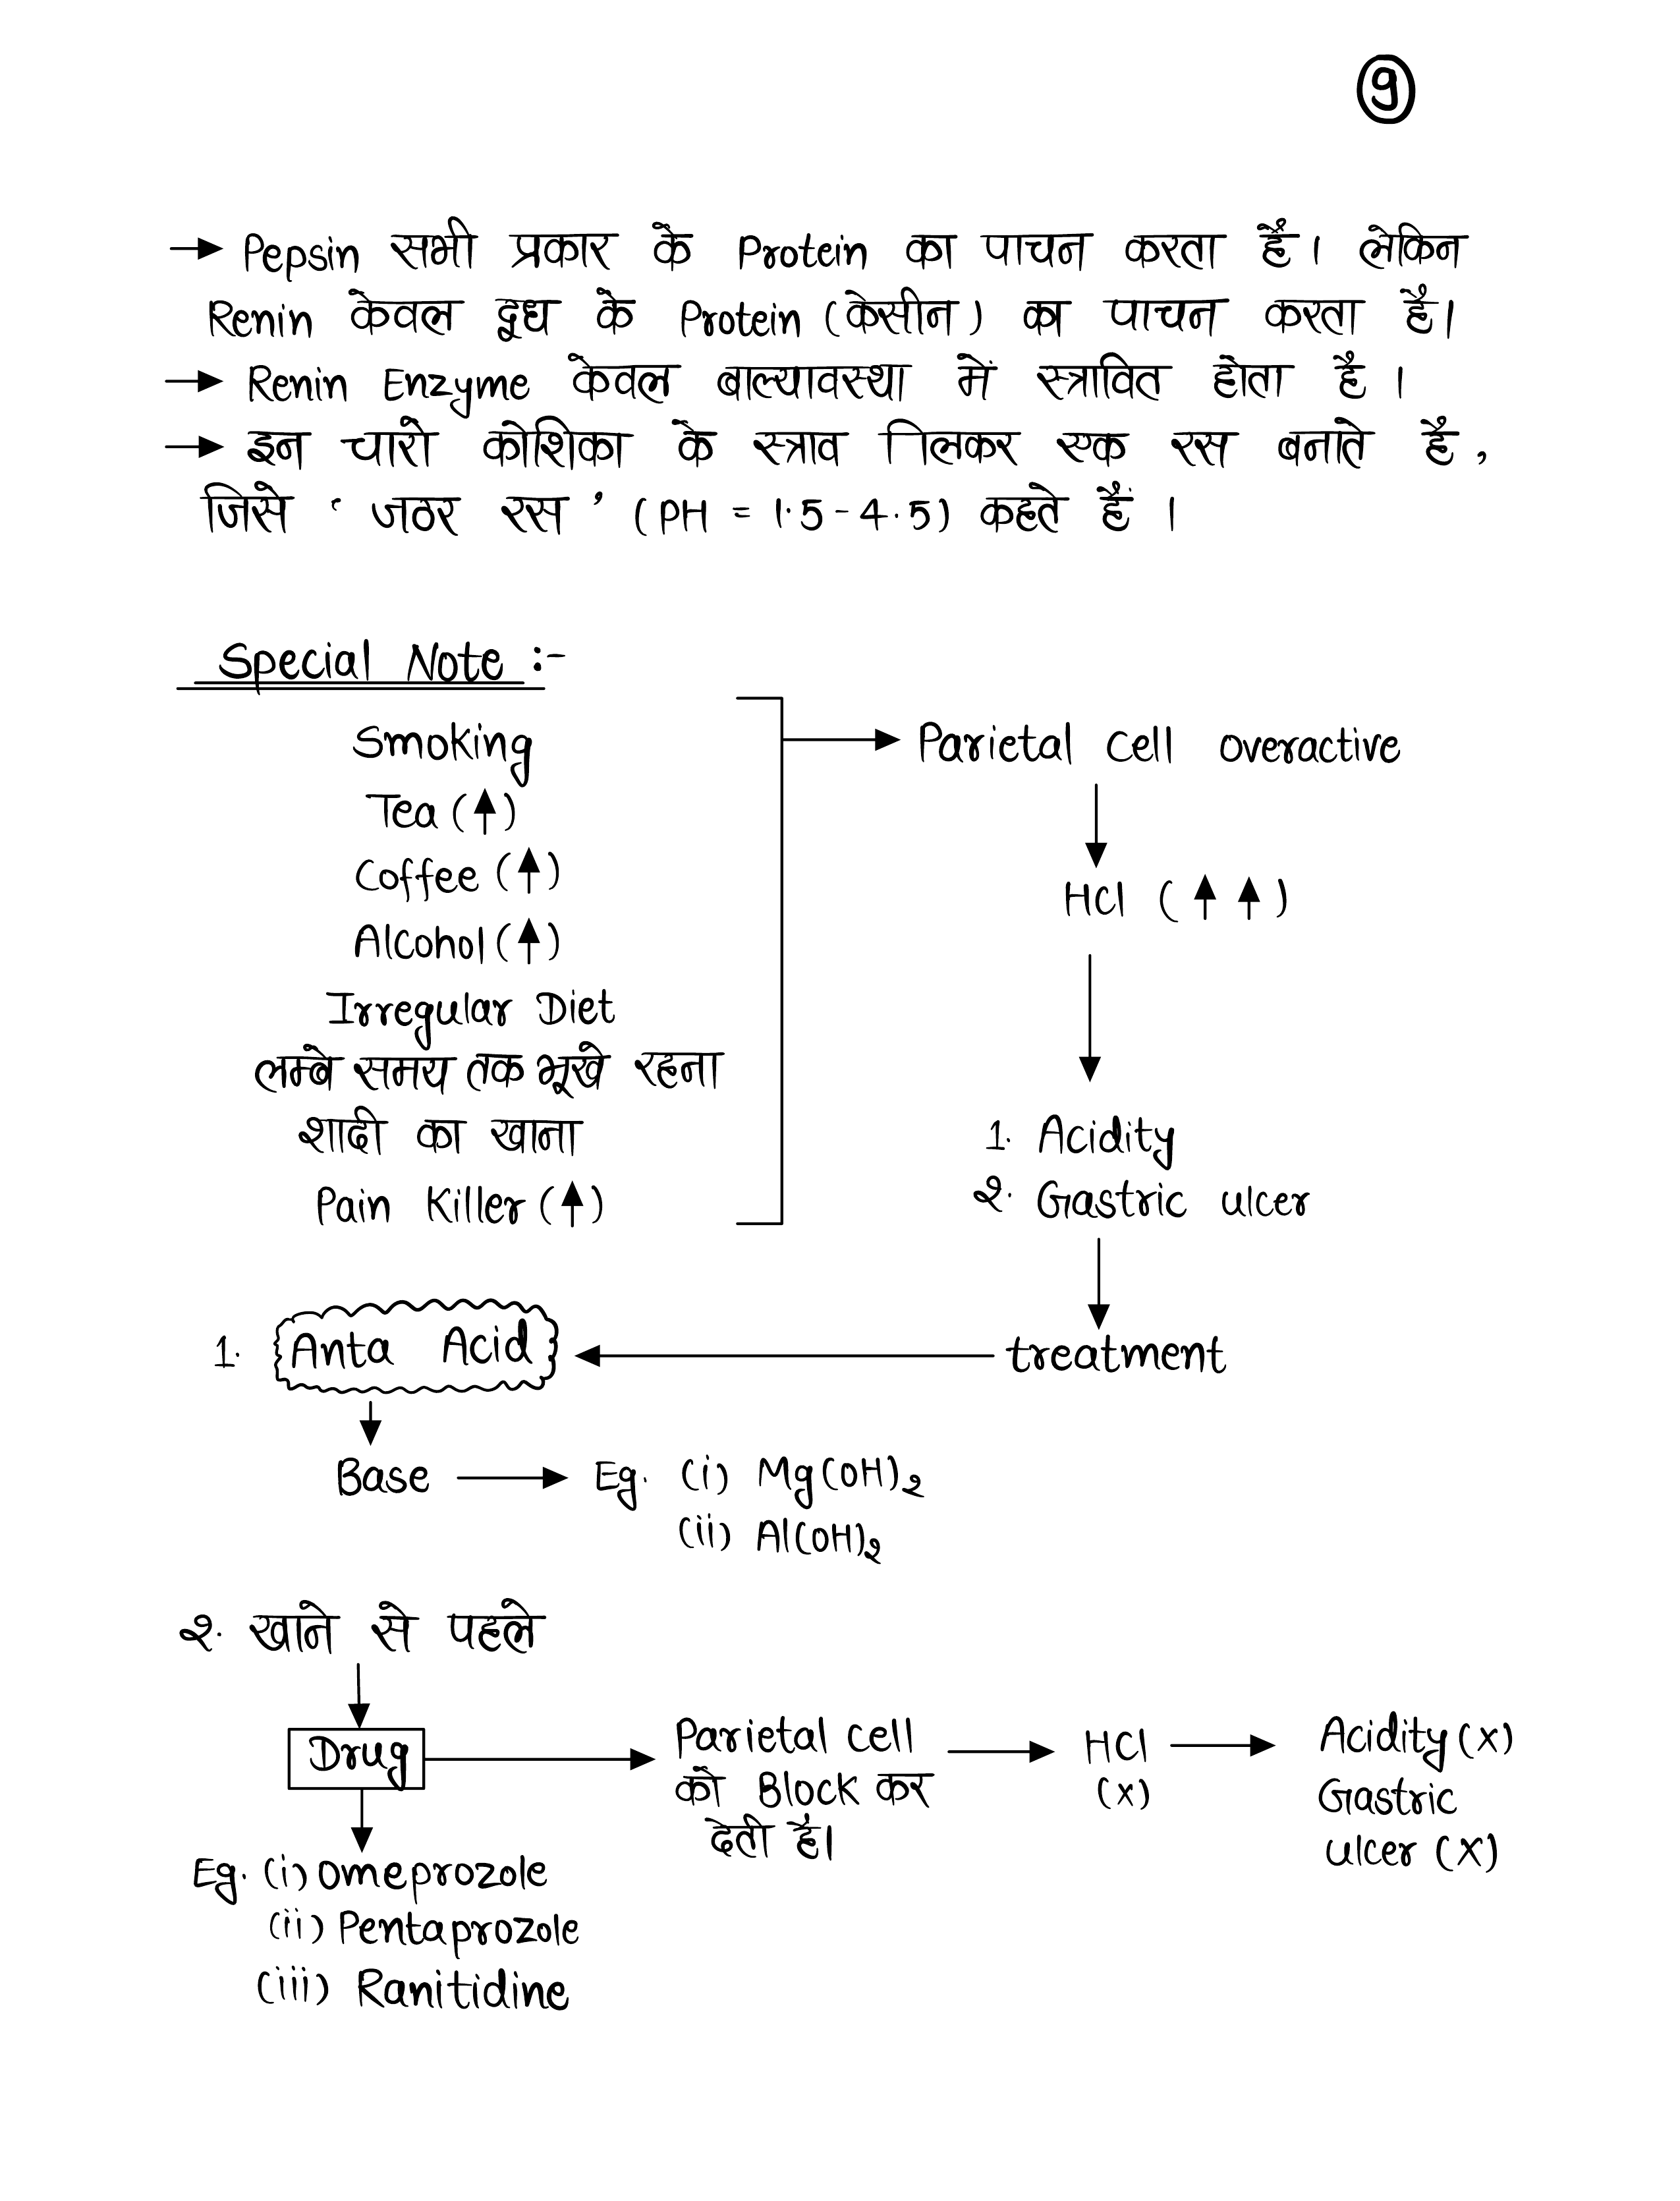 9
→ Pepsin सभी प्रकार के Protein का पाचन करता हैं। लेकिन
Renin केवल दूध के Protein (केसीन) का पाचन करता है।
→ Renin Enzyme केवल बाल्यावस्था में स्त्रावित होता है।
→ इन चारो कोशिका के स्त्राव लिकर एक रस बनाते है,
जिसे ‘जठर रस’ (PH = 1.5-4.5) कहते हैं।
Special Note :-
Smoking
Tea (↑)
Coffee (↑)
Alcohol (↑)
Irregular Diet
लम्बे समय तक भूखे रहना
शादी का खाना
Pain Killer (↑)
→ Parietal cell overactive
↓
HCl (↑ ↑)
↓
1. Acidity
२. Gastric ulcer
↓
treatment
1. Anta Acid ←
↓
Base → Eg. (i) Mg(OH)₂
(ii) Al(OH)₂
२. खाने से पहले
↓
Drug → Parietal cell को Block कर देती है। → HCl (x) → Acidity (x) Gastric ulcer (x)
↓
Eg. (i) Omeprozole
(ii) Pentaprozole
(iii) Ranitidine